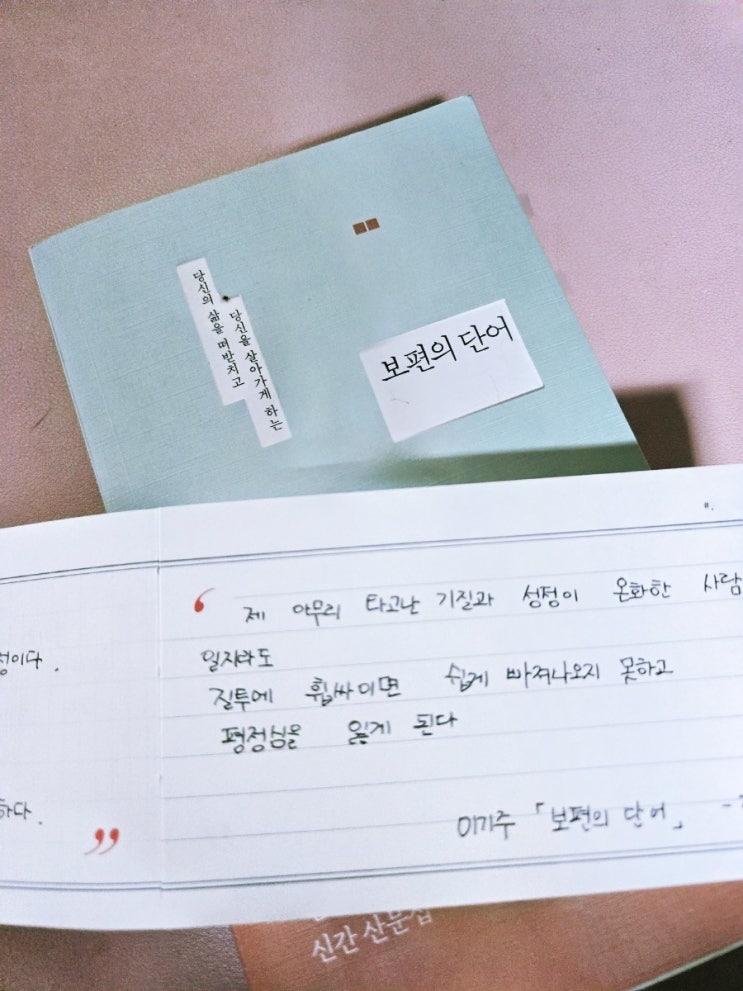 당신의 삶을 떠받치고
당신을 살아가게 하는
보편의 단어
정이다.
하다.
제 아무리 타고난 기질과 성정이 온화한 사람
일지라도
질투에 휩싸이면 쉽게 빠져나오지 못하고
평정심을 잃게 된다
이기주 「보편의 단어」
신간 산문집